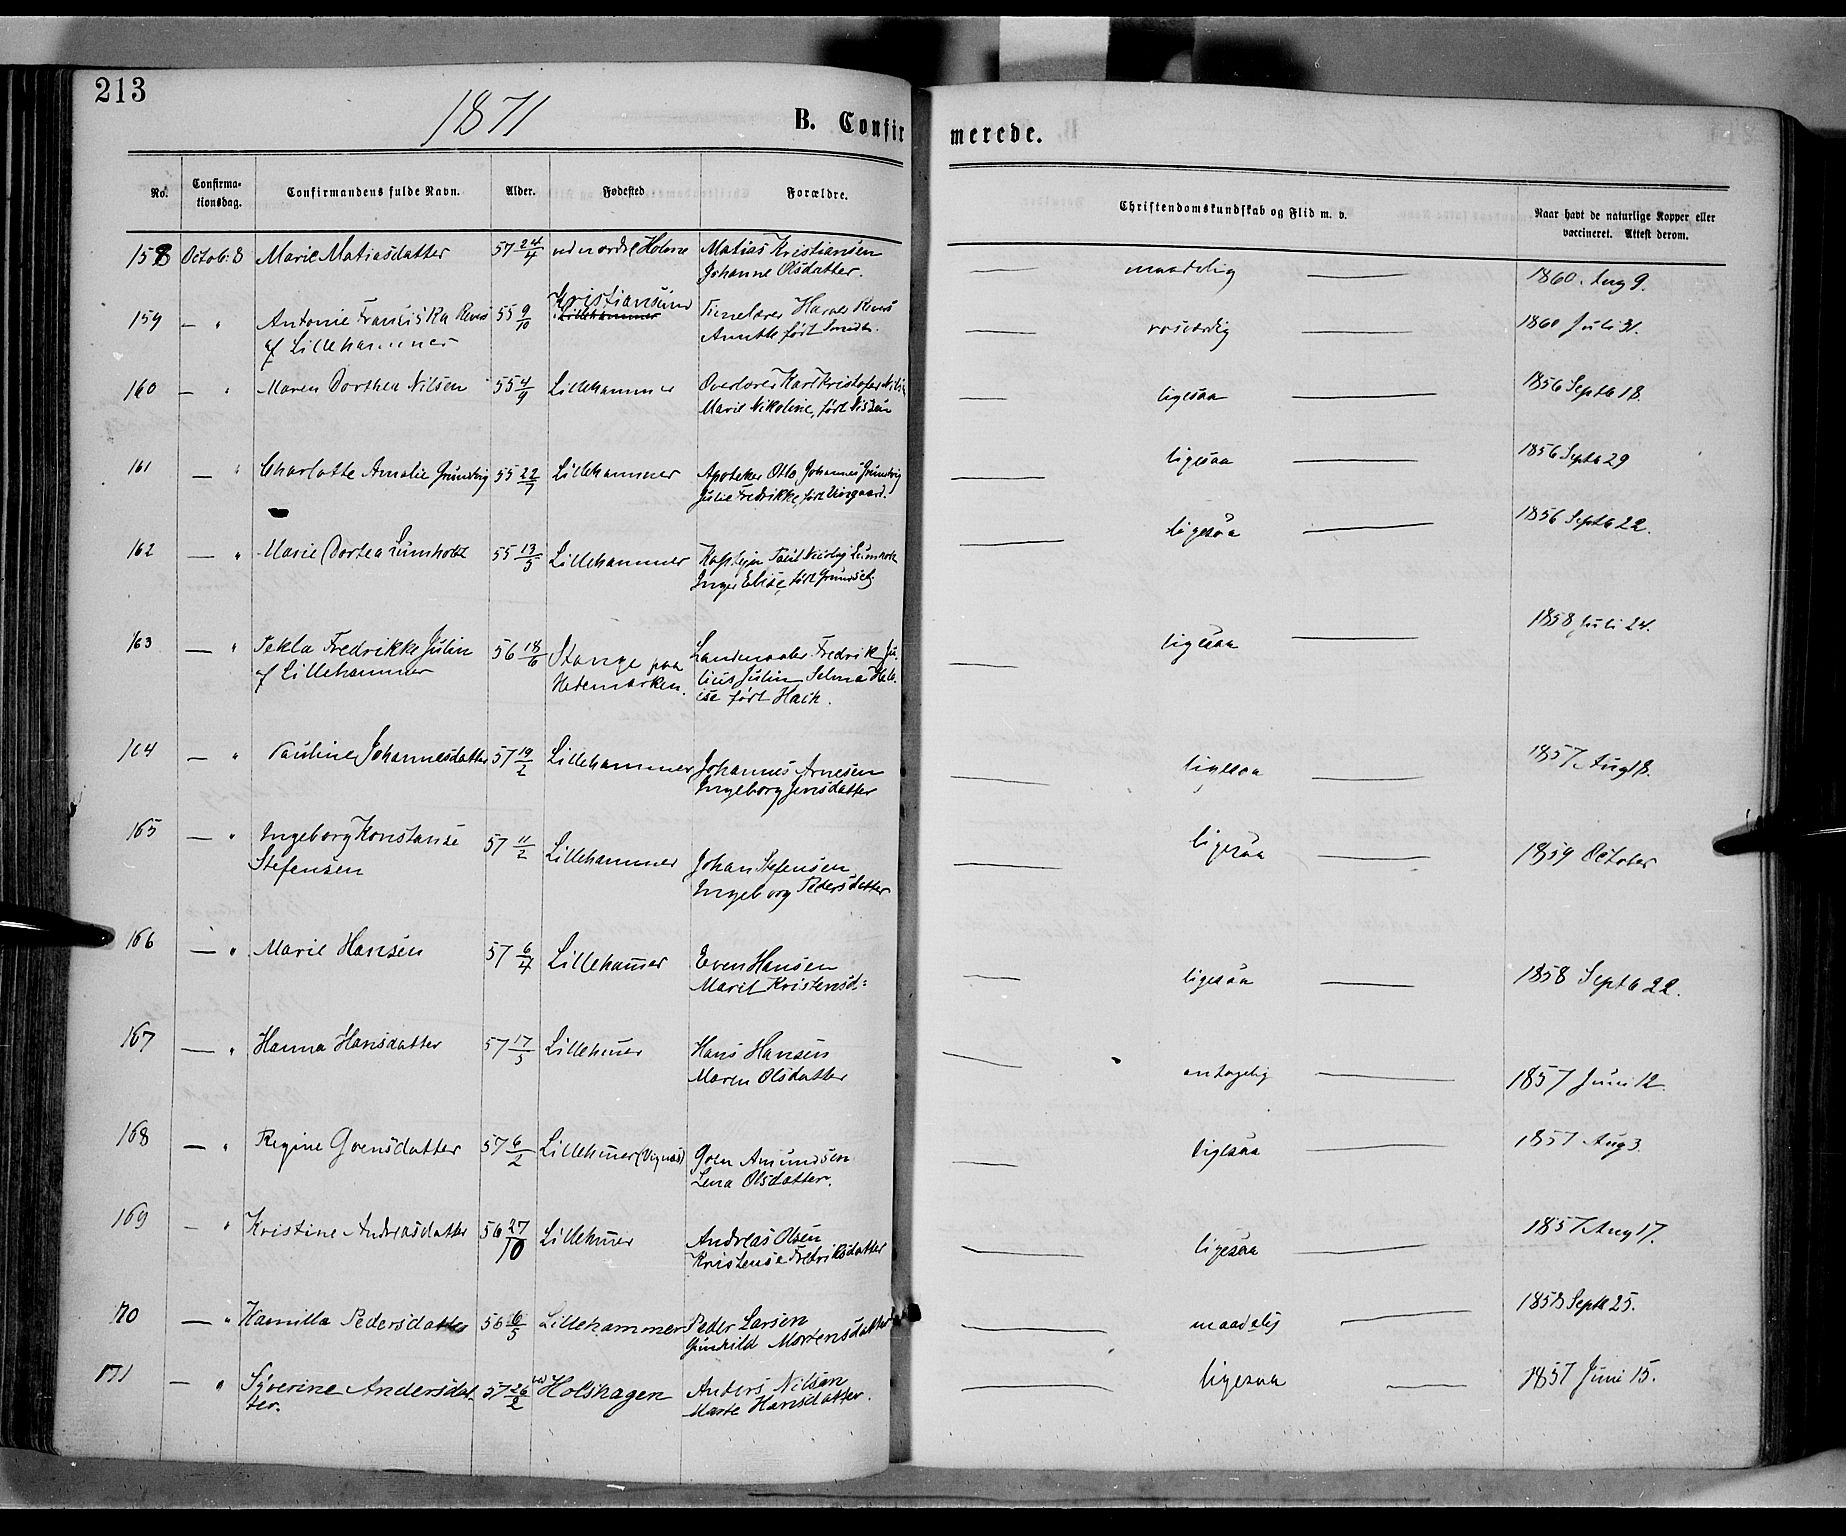 213
1871
B. Confirmerede.
No. Confirmationsdag. Confirmandens fulde Navn. Alder. Fødested Forældre. Christendomskundskab og Flid m. v. Naar havt de naturlige Kopper eller vaccineret. Attest derom.
158 Octob: 8 Marie Matiasdatter 57 24/4 nordre Holme Matias Kristiansen — maadelig — 1860. Aug 9.
Johanne Olsdatter.
159 — " Antonie Fransiska 55 9/10 Kristiansund — rosværdig — 1860 Juli 31.
Lillehammer
af Lillehammer født
160 — " Maren Dorthea Nilsen 55 4/9 Lillehammer Overlærer Karl Kristofer — ligesaa — 1856 Septb 18.
Marie Nikoline, født Nissen
161 — " Charlotte Amalie Grundtvig 55 22/7 Lillehammer Apoteker Otto Johannes Grundtvig — ligesaa — 1856 Septb 29
Julie Fredrikke, født
162 — " Marie Dortea Lumholtz 55 13/5 Lillehammer Kaptejn Paul Nicolaj Lumholtz — ligesaa — 1856 Septb 22.
Inger Elise, født
163 — " Tekla Fredrikke Julin 56 18/6 Stange paa Landmaaler Fredrik Ju- — ligesaa — 1858 Juli 24.
af Lillehammer Hedemarken. lius Julin Selma
født
164 — " Pauline Johannesdatter 57 19/2 Lillehammer Johannes Arnesen — ligesaa — 1857. Aug 18.
Ingeborg Jensdatter
165 — " Ingeborg Konstanse 57 11/2 Lillehammer Johan Stefensen — ligesaa — 1859 October
Stefensen Ingeborg Pedersdatter
166 — " Marie Hansen 57 6/4 Lillehamer Even Hansen — ligesaa — 1858 Septb 22.
Marit Kristensd:
167 — " Hanna Hansdatter 57 17/5 Lillehmer Hans Hansen — antagelig — 1857 Juni 12.
Maren Olsdatter
168 — " Regine Goensdatter 57 6/2 Lillehmer (Vignæs) Goen Amundsen — ligesaa — 1857 Aug 3.
Lena Olsdatter.
169 — " Kristine Andreasdatter 56 27/10 Lillehmer Andreas Olsen — ligesaa — 1857. Aug 17.
Kristense Fredriksdatter
170 — " Kamilla Pedersdatter 56 16/5 Lillehammer Peder Larsen — maadelig — 1858 Septb 25.
Gunhild Mortensdatter
171 — " Syverine Andersdat- 57 26/2 ved Holshagen Anders Nilsen — ligesaa — 1857 Juni 15.
ter. Marte Hansdatter.